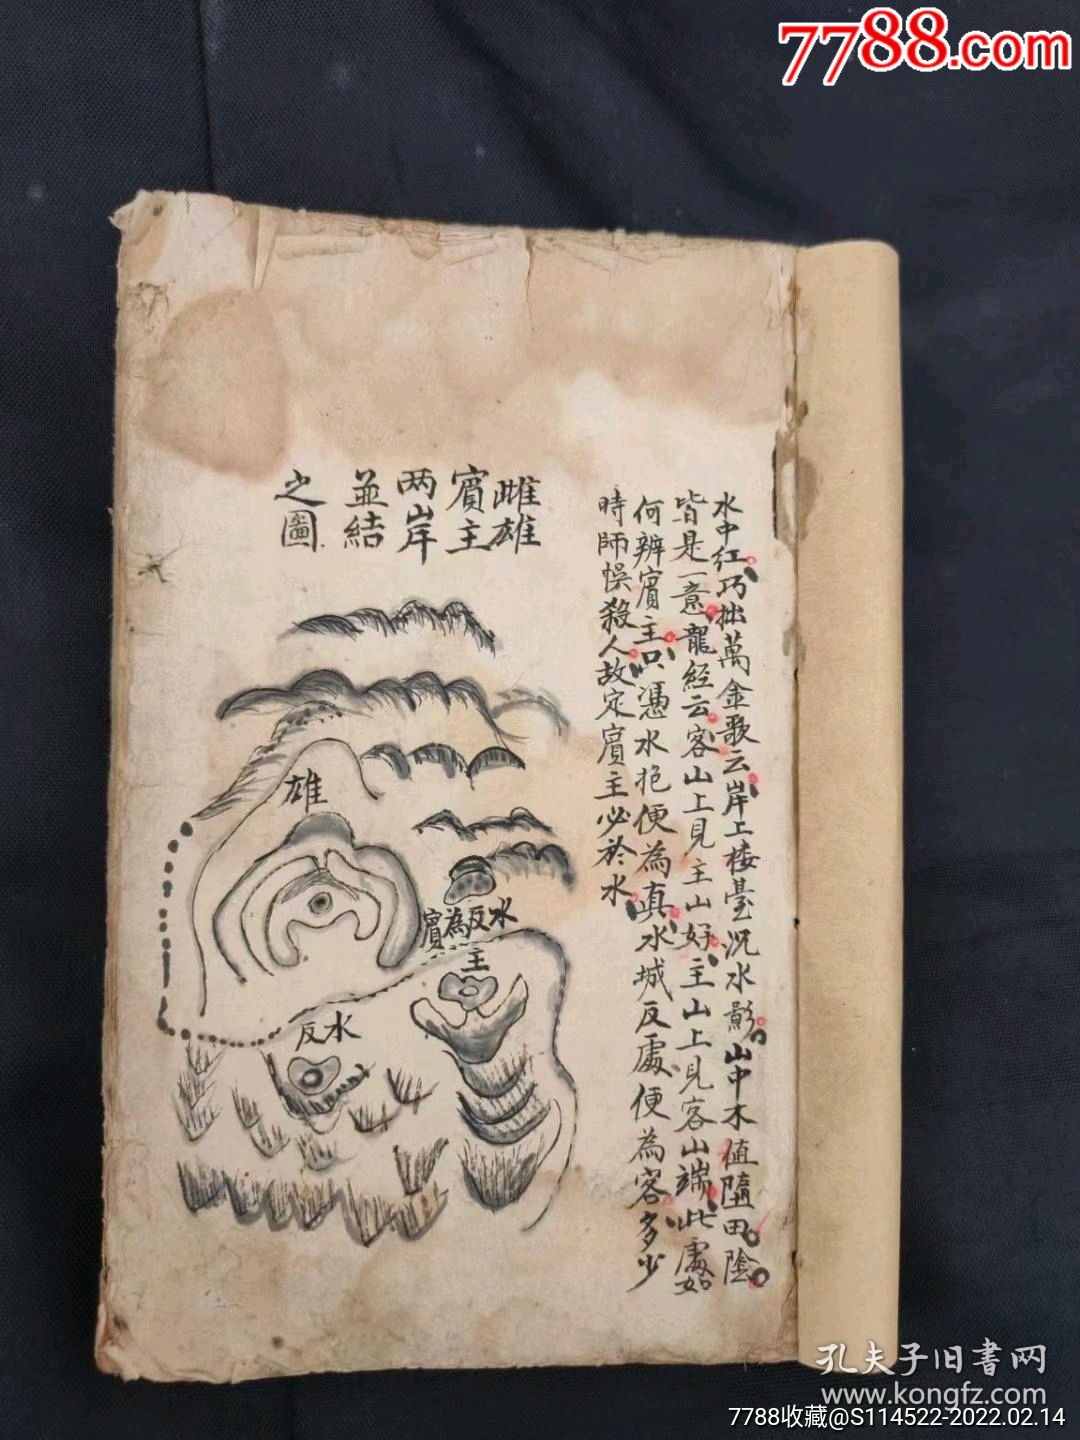 7788.com
水中红巧拙萬金歌云岸上楼臺沉水影山中木值隨田陰
皆是一意龍經云客山上見主山好主山上見客山端此處如
何辨賓主只憑水抱便為真水城反處便為客多少
時師悞殺人故定賓主必於水
雌雄
賓主
两岸
並結
之圖
雄
水反為賓
主
水反
孔夫子旧書网
www.kongfz.com
7788收藏@S114522-2022.02.14